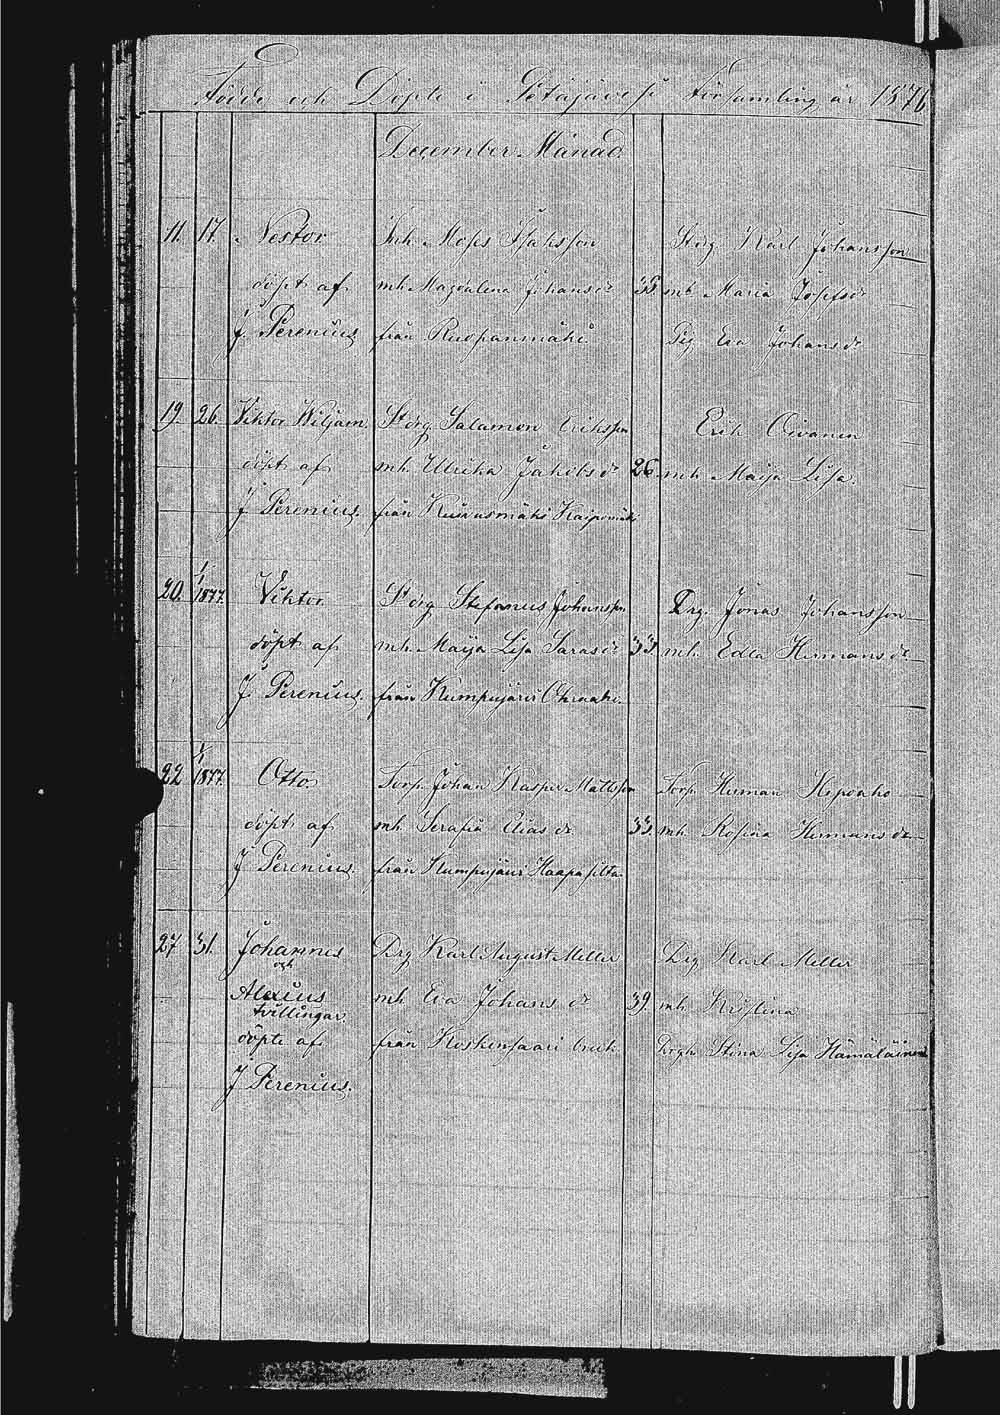 Födde och Döpte i Petäjävesi Församling år 1876
December Månad.
11. 17. Nestor Inh. Moses Isaksson Störg Karl Johansson
döpt af mh. Magdalena Johans dr 35 mh Maria Josefs dr
J. Perenius från Ruopanmäki. Pig. Eva Johans dr
19. 26. Viktor Wiljam. Störg. Salamon Eriksson Erik Oivanen
döpt af mh. Ulrika Jakobs dr 26. mh Maija Lisa.
J Perenius. från Kuivasmäki
20. 1/1 1877. Viktor Störg Stefanus Johansson Drg. Jonas Johansson
döpt af mh. Maija Lisa Saras dr 33 mh. Edla Hermans dr
J. Perenius. från Kumpujärvi
22 1/1 1877. Otto. Torp. Johan Kasper Mattsson Torp. Herman
döpt af mh. Serafia Elias dr 33. mh. Rosina Hermans dr
J Perenius. från Kumpujärvi Haapasilta.
27 31. Johannes Drg Karl August Meller Drg Karl Meller
och
Alexius mh Eva Johans dr 39. mh Kristina
tvillingar.
döpte af från Koskensaari bruk Stina Lisa Hämäläinen
J Perenius.